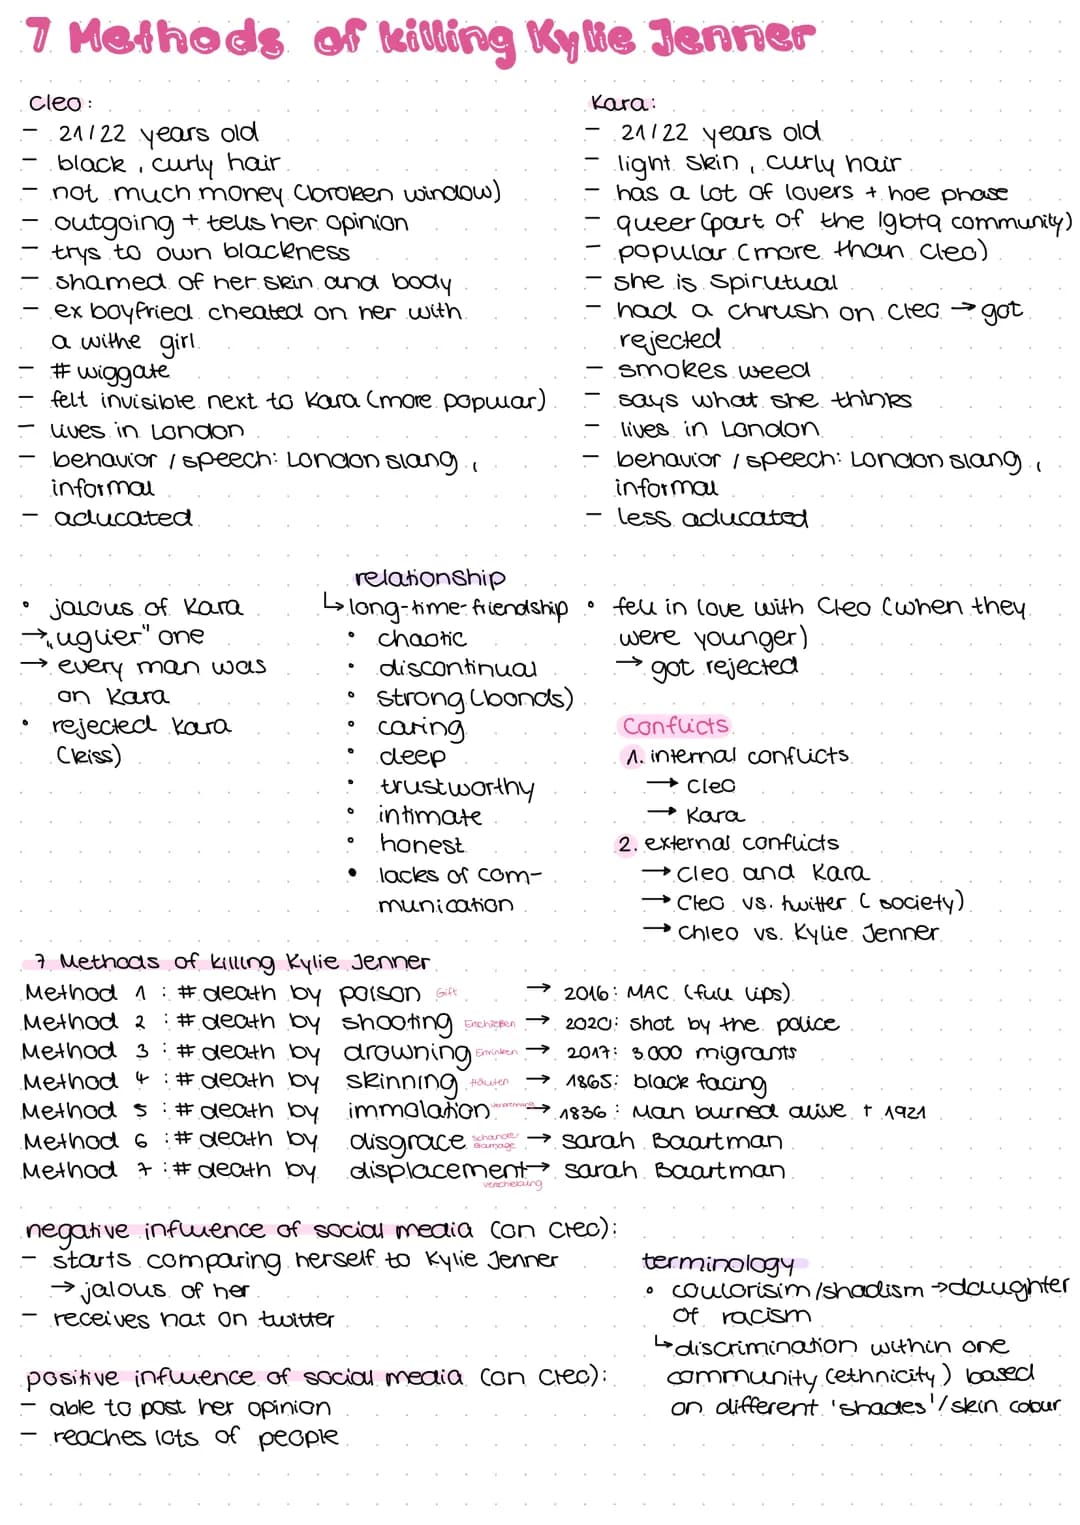 7 Methods of killing Kylie Jenner
Cleo:
- 21/22 years old
- black, curly hair
- not much money (broken window)
- outgoing + tells her opinion
- trys to own blackness
- shamed of her skin and body
- ex boyfried cheated on her with
a withe girl
- # wiggate
- felt invisible next to Kara (more popular)
- lives in London
- behavior / speech: London slang,
informal
- aducated
Kara:
- 21/22 years old
- light skin, curly hair
- has a lot of lovers + hoe phase
- queer (part of the lgbtq community)
- popular (more than Cleo)
- she is spirutual
- had a chrush on Cleo → got
rejected
- smokes weed
- says what she thinks
- lives in London
- behavior / speech: London slang,
informal
- less aducated
• jalous of Kara
→ „uglier" one
→ every man was
on Kara
• rejected Kara
(kiss)
relationship
↳ long-time-friendship
• chaotic
• discontinual
• strong (bonds)
• caring
• deep
• trustworthy
• intimate
• honest
• lacks of com-
munication
• fell in love with Cleo (when they
were younger)
→ got rejected
Conflicts
1. internal conflicts
→ Cleo
→ Kara
2. external conflicts
→ Cleo and Kara
→ Cleo vs. twitter (society)
→ Chleo vs. Kylie Jenner
7 Methods of killing Kylie Jenner
Method 1 : # death by poison Gift → 2016: MAC (full lips)
Method 2 : # death by shooting Erschießen → 2020: shot by the police
Method 3 : # death by drowning Ertrinken → 2017: 3.000 migrants
Method 4 : # death by skinning Häuten → 1865: black facing
Method 5 : # death by immolation → 1836: Man burned alive + 1921
Method 6 : # death by disgrace Schande → sarah Baartman
Method 7 : # death by displacement → sarah Baartman
negative influence of social media (on Cleo):
- starts comparing herself to Kylie Jenner
→ jalous of her
- receives hat on twitter
positive influence of social media (on Cleo):
- able to post her opinion
- reaches lots of people
terminology
• coulorisim/shadism → daughter
of racism
↳ discrimination within one
community (ethnicity) based
on different 'shades'/skin colour